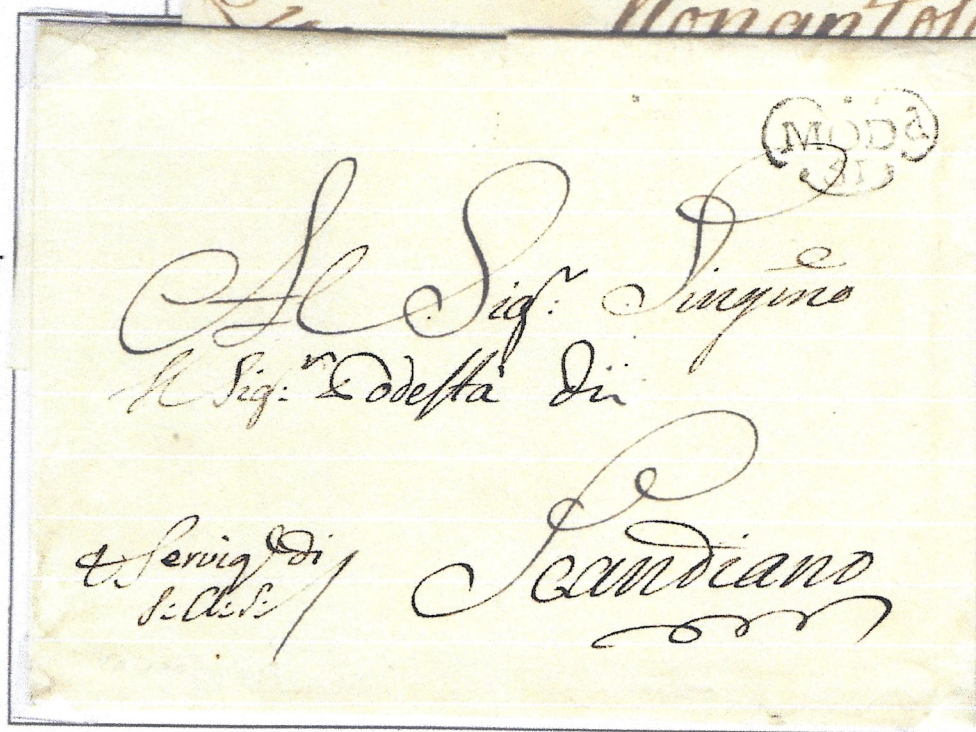 Nonantol
MODa
Al Sigr. Singmo
Il Sig:r Podestà di
Scandiano
Servigo di
S: A: S: